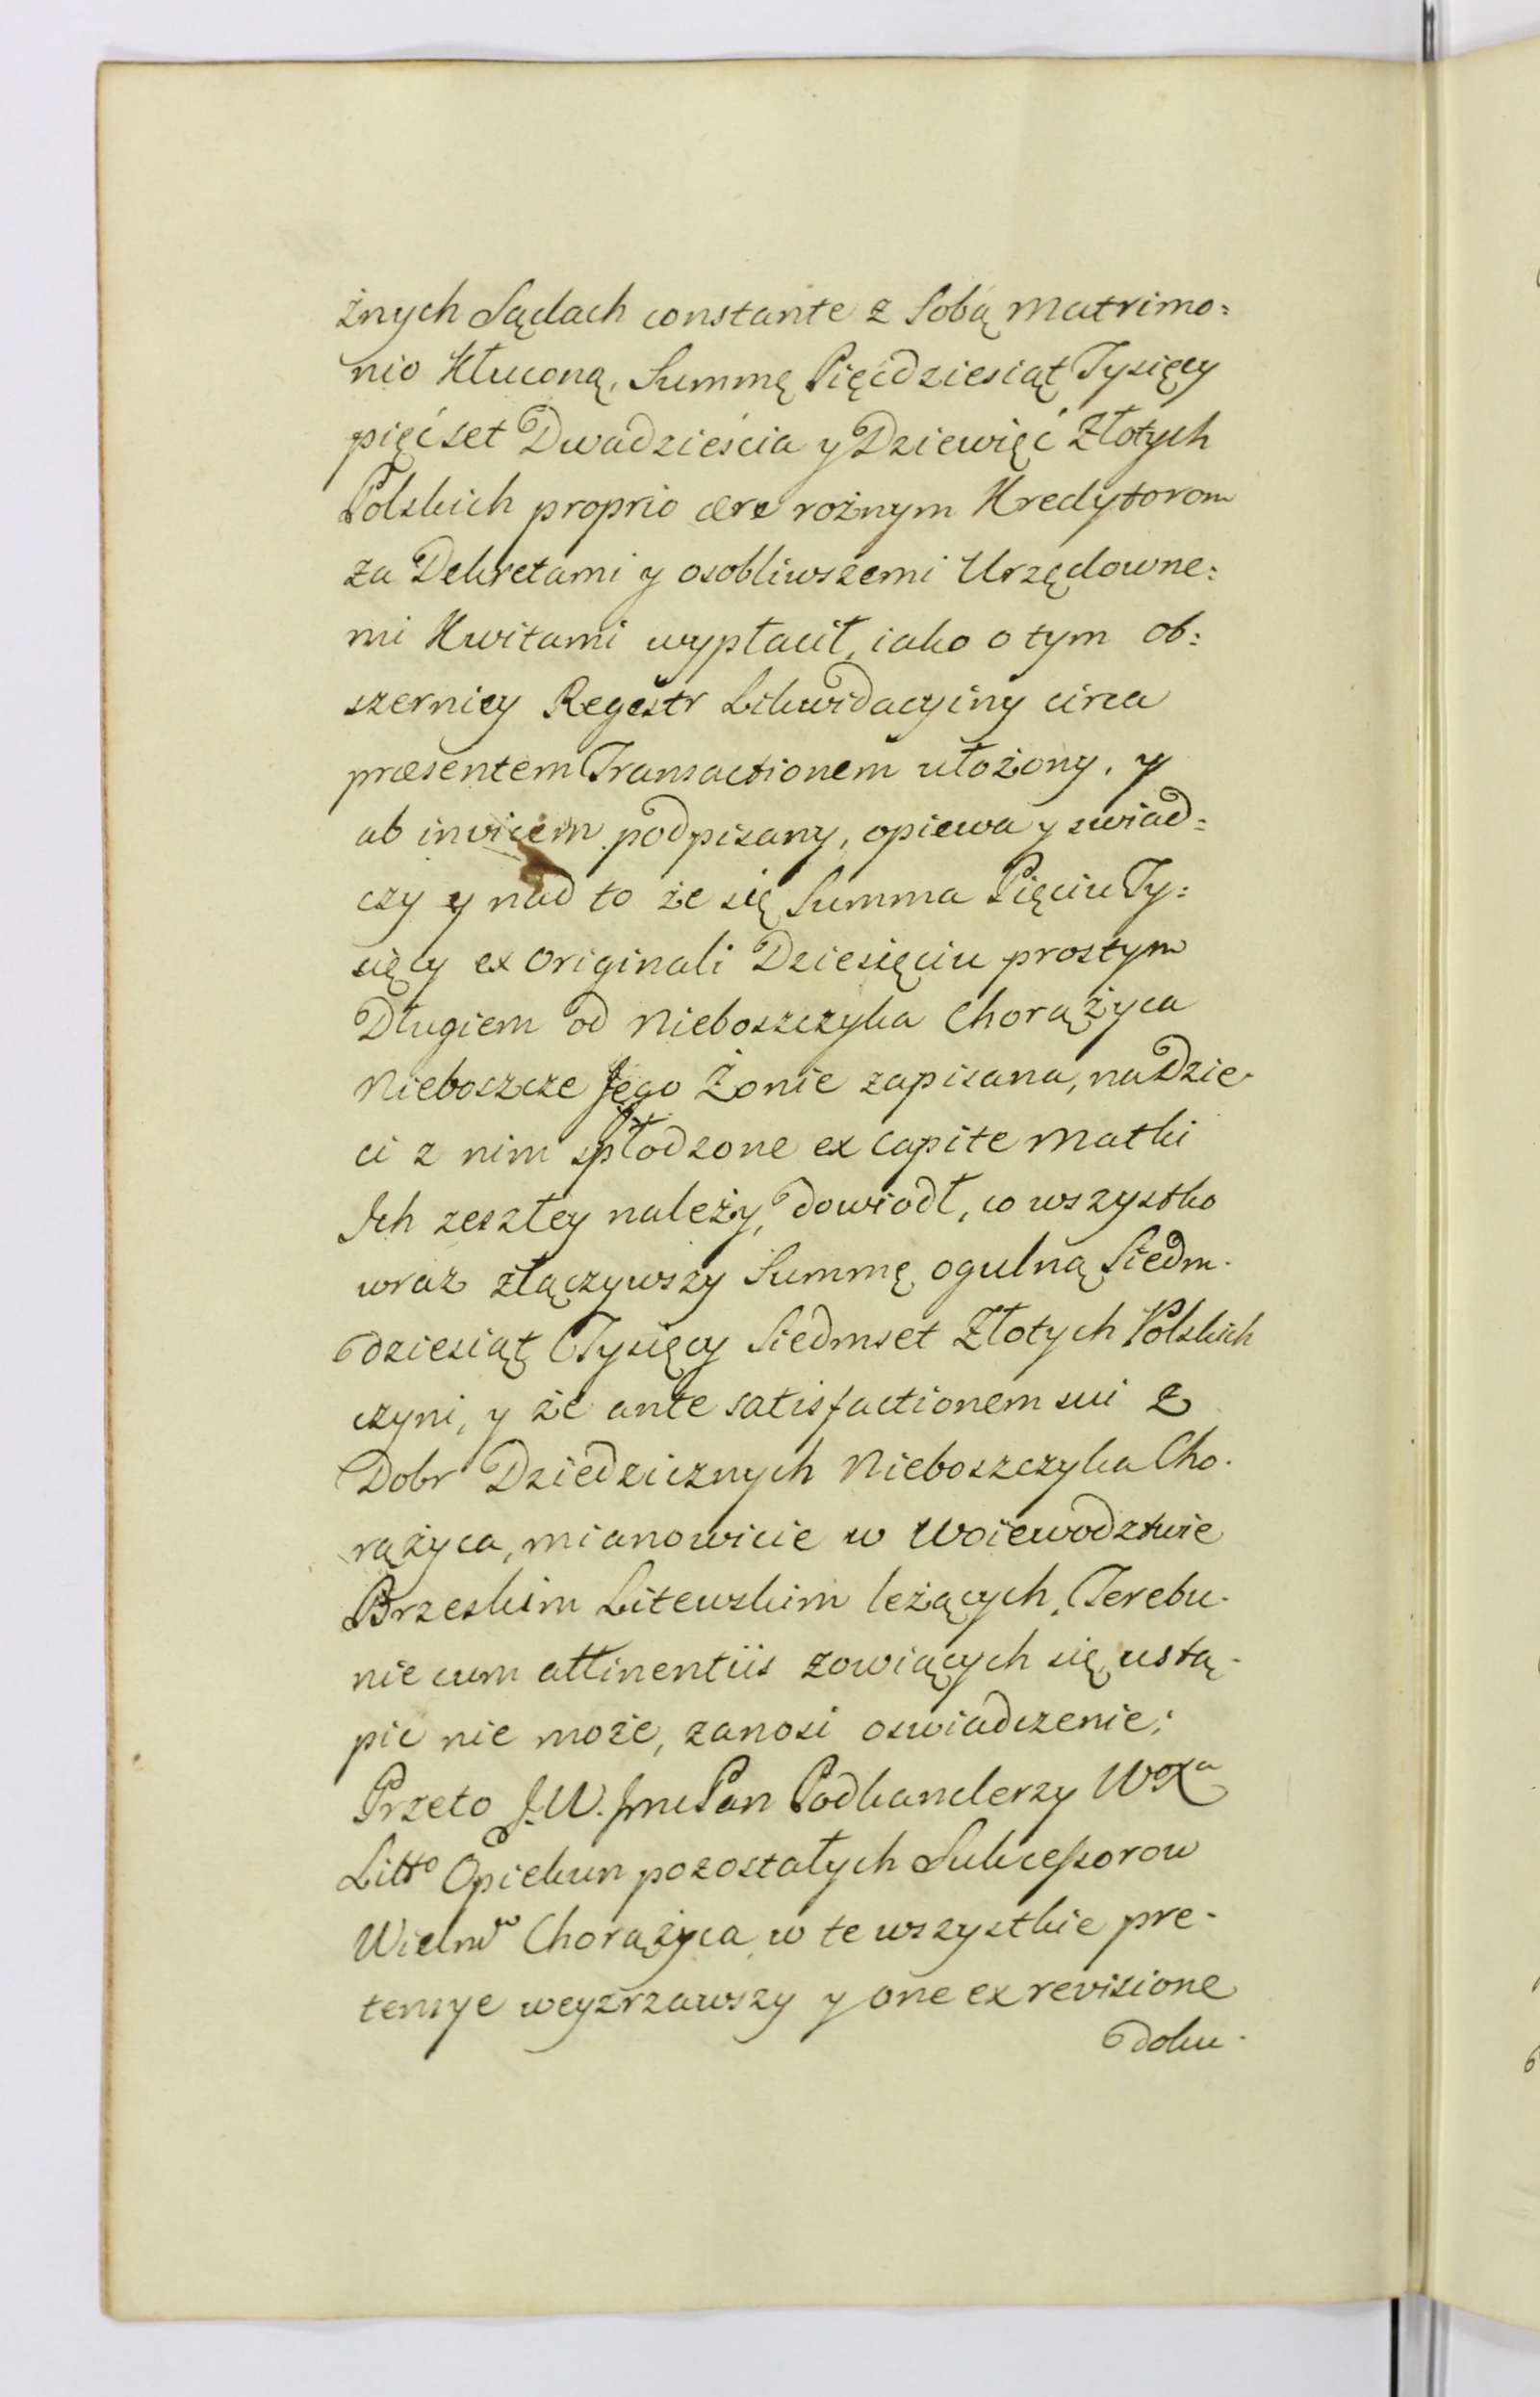 żnych Sądach constante z Sobą Matrimo:
nio Kłuconą, Summę Pięćdziesiąt Tysięcy
pięćset Dwadzieścia y Dziewięć Złotych
Polskich proprio ære rożnym Kredytorom
za Dekretami y osobliwszemi Urzędowne:
mi Kwitami wypłacił, iako o tym ob:
szerniey Regestr Likwidacyiny circa
præsentem Transactionem ułożony, y
ab invicem podpisany, opiewa y swiad:
czy y nad to że się Summa Pięciu Ty:
sięcy ex Originali Dziesięciu prostym
Długiem od Nieboszczyka Chorążyca
Nieboszcze Jego Żonie zapisana, na Dzie-
ci z nim spłodzone ex Capite Matki
Ich zeszłey należy, dowiodł, co wszystko
wraz złączywszy Summę ogulną Siedm-
dziesiąt Tysięcy Siedmset Złotych Polskich
czyni, y że ante satisfactionem sui z
Dobr Dziedzicznych Nieboszczyka Cho-
rążyca, mianowicie w Woiewodztwie
Brzeskim Litewskim leżących, Terebu-
nie cum attinentiis zowiących się, ustą-
pic nie może, zanosi oswiadczenie;
Przeto J.W. Jmc Pan Podkanclerzy WXa
Littо Opiekun pozostałych Sukcessorow
Wielmo Chorążyca w te wszystkie pre-
tensye weyzrzawszy y one ex revisione
doku-